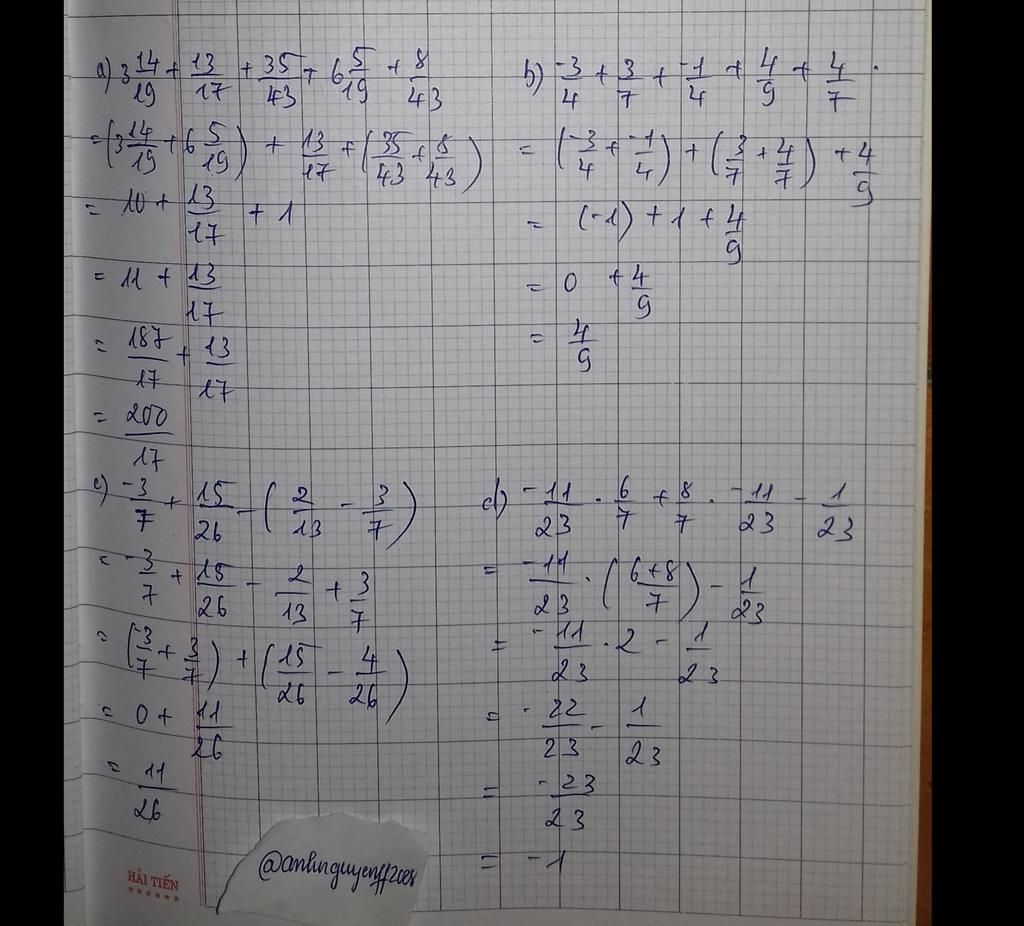 a) 3 14/19 + 13/17 + 35/43 + 6 5/19 + 8/43
= (3 14/19 + 6 5/19) + 13/17 + (35/43 + 8/43)
= 10 + 13/17 + 1
= 11 + 13/17
= 187/17 + 13/17
= 200/17
b) -3/4 + 3/7 + -1/4 + 4/9 + 4/7.
= (-3/4 + -1/4) + (3/7 + 4/7) + 4/9
= (-1) + 1 + 4/9
= 0 + 4/9
= 4/9
c) -3/7 + 15/26 - (2/13 - 3/7)
= -3/7 + 15/26 - 2/13 + 3/7
= (-3/7 + 3/7) + (15/26 - 4/26)
= 0 + 11/26
= 11/26
d) -11/23 . 6/7 + 8/7 . -11/23 - 1/23
= -11/23 . (6+8/7) - 1/23
= -11/23 . 2 - 1/23
= -22/23 - 1/23
= -23/23
= -1
HẢI TIẾN